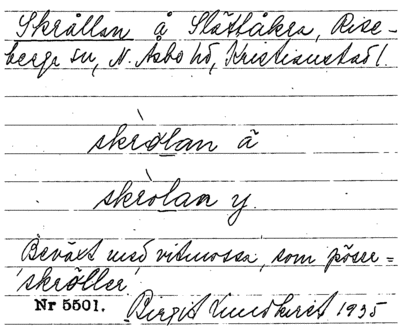 Skrållan å Slättåkra, Rise-
berga sn, N. Åsbo hd, Kristianstad l.
skròlan å
skròlan y.
Beväxt med vitmossa, som pöser =
'skröller'
Nr 5501. Birgit Lundkvist 1935